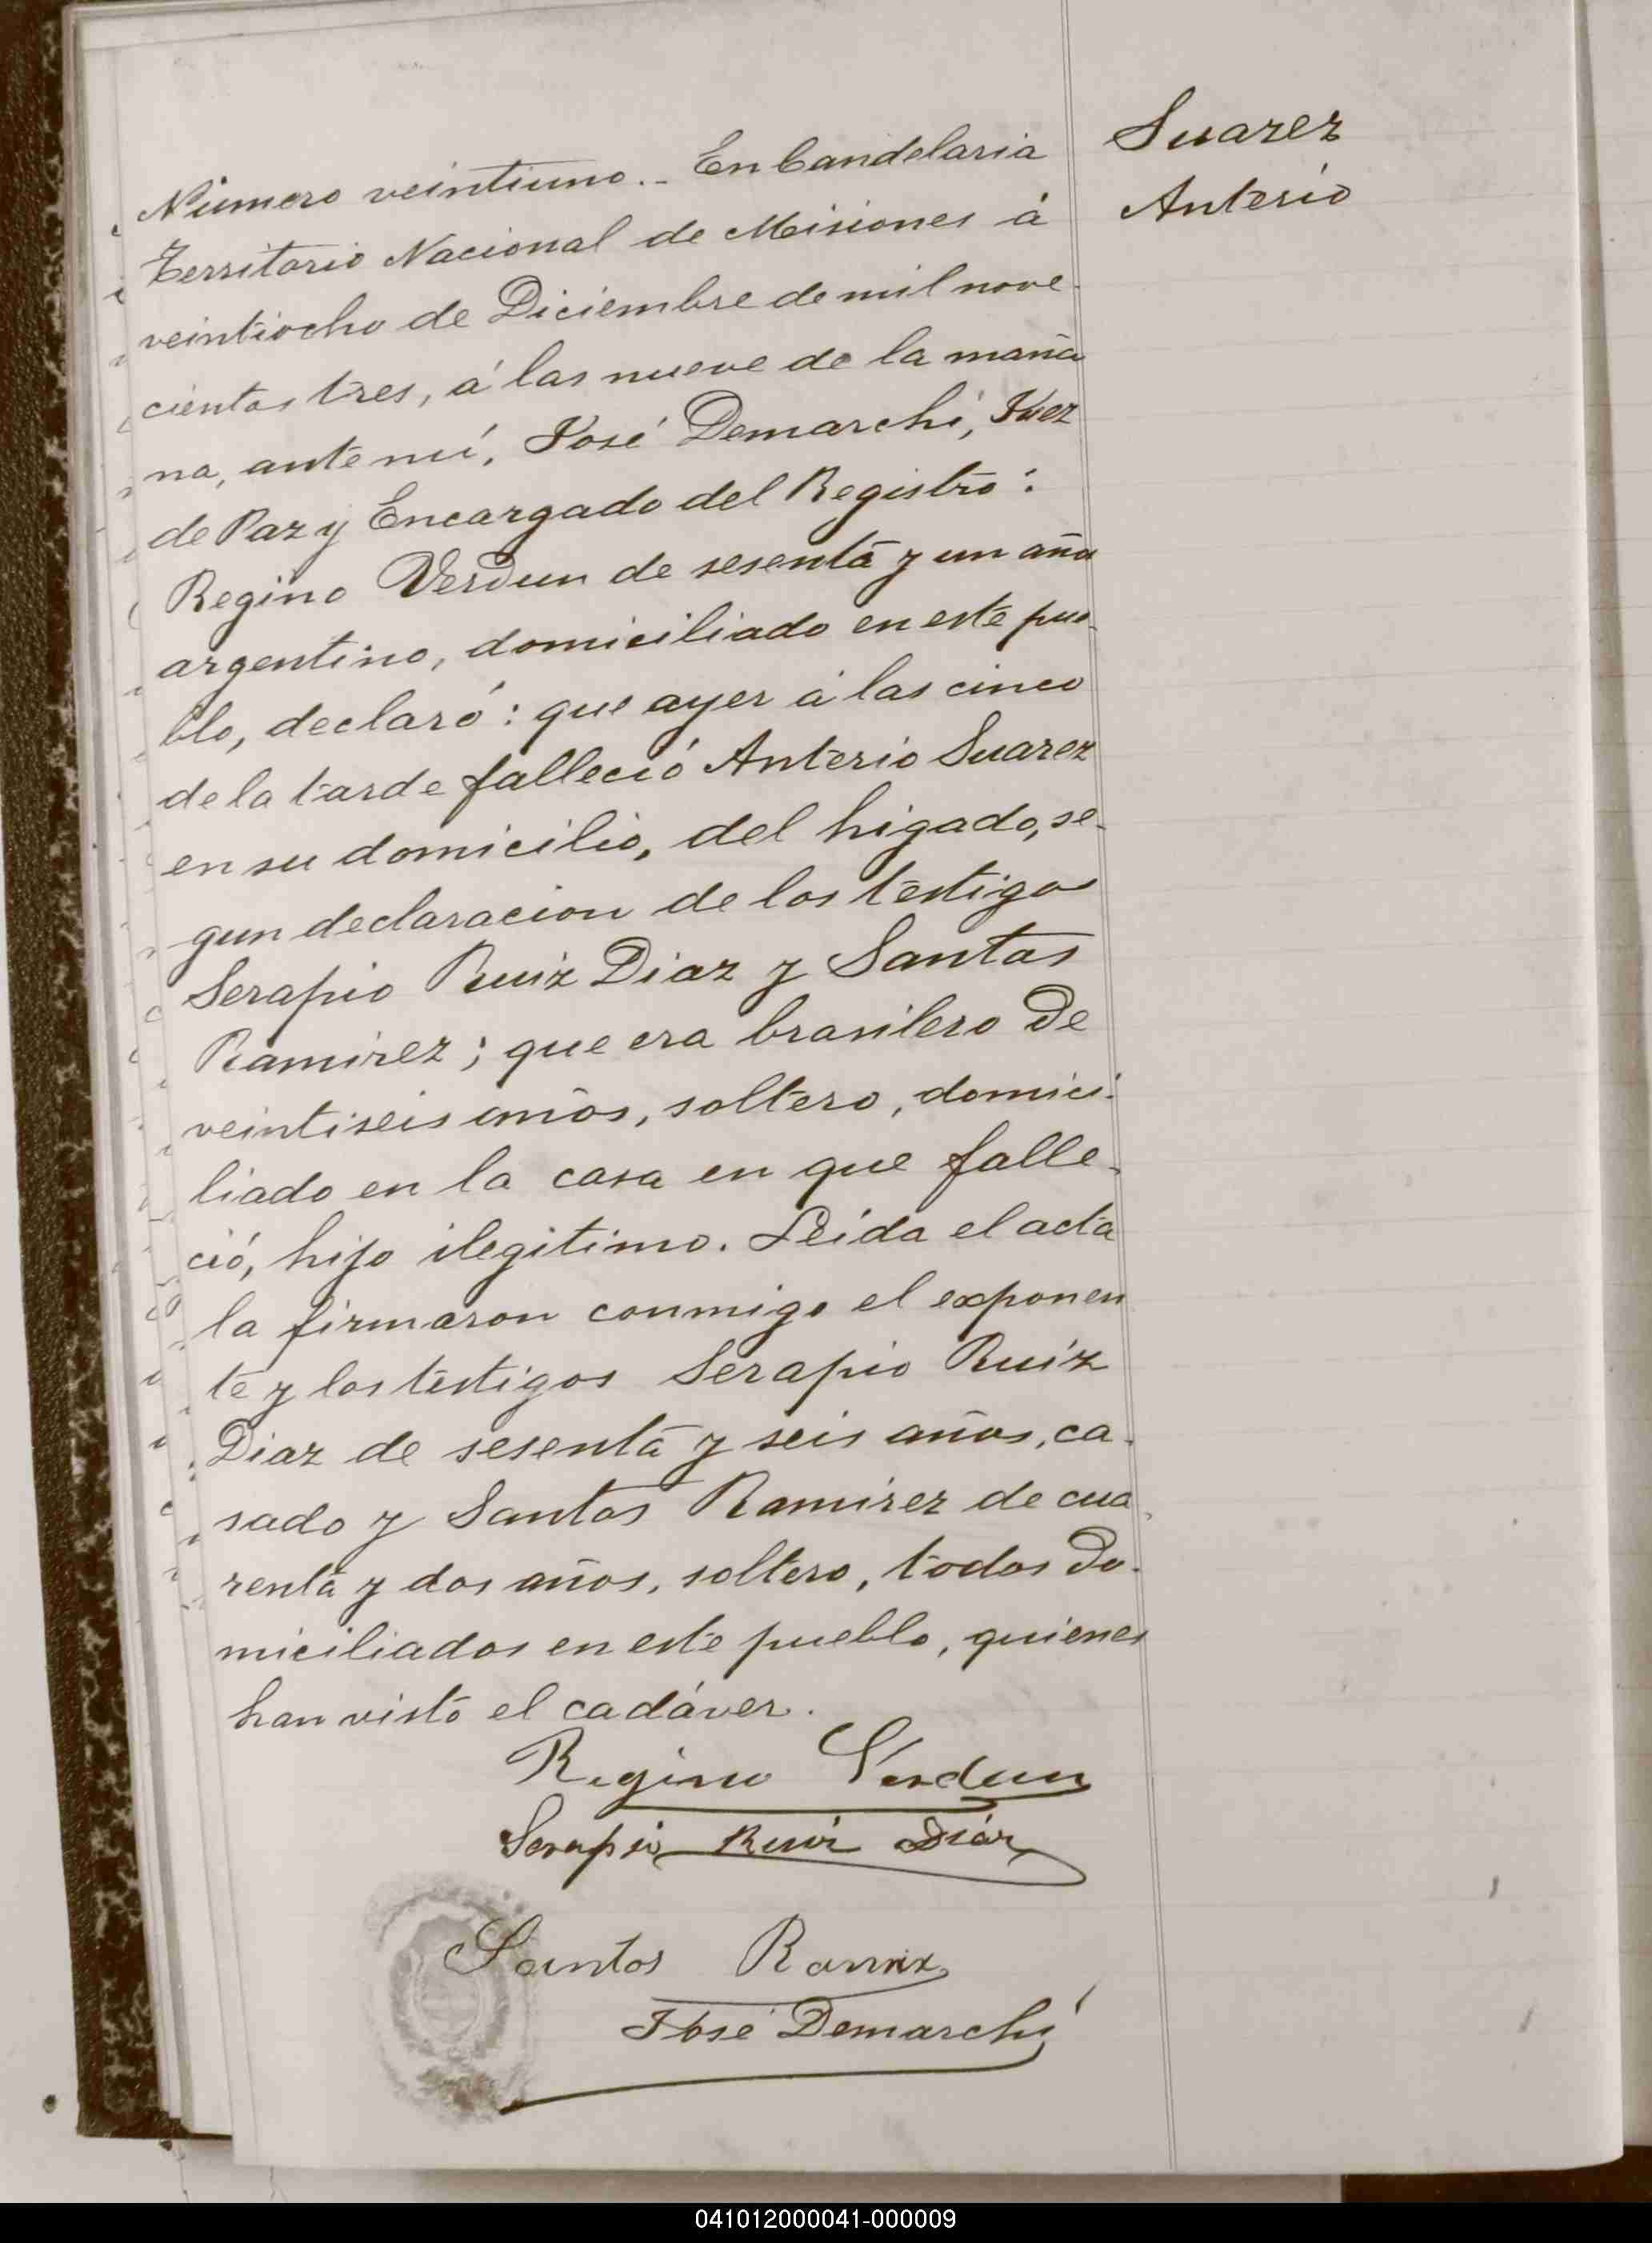 Suarez
Anterio
Número veintiuno.- En Candelaria
Territorio Nacional de Misiones á
veintiocho de Diciembre de mil nove-
cientos tres, á las nueve de la maña
na, ante mí, José Demarchi, Juez
de Paz y Encargado del Registro:
Regino Verdun de sesenta y un años
argentino, domiciliado en este pue-
blo, declaró: que ayer á las cinco
de la tarde falleció Anterio Suarez
en su domicilio, del higado, se-
gun declaracion de los testigos
Serapio Ruiz Diaz y Santos
Ramirez; que era brasilero de
veintiseis años, soltero, domici-
liado en la casa en que falle-
ció, hijo ilegitimo. Leida el acta
la firmaron conmigo el exponen
te y los testigos Serapio Ruiz
Diaz de sesenta y seis años, ca-
sado y Santos Ramirez de cua-
renta y dos años, soltero, todos do-
miciliados en este pueblo, quienes
han visto el cadáver.
Regino Verdun
Serapio Ruiz Diaz
Santos
José Demarchi
041012000041-000009